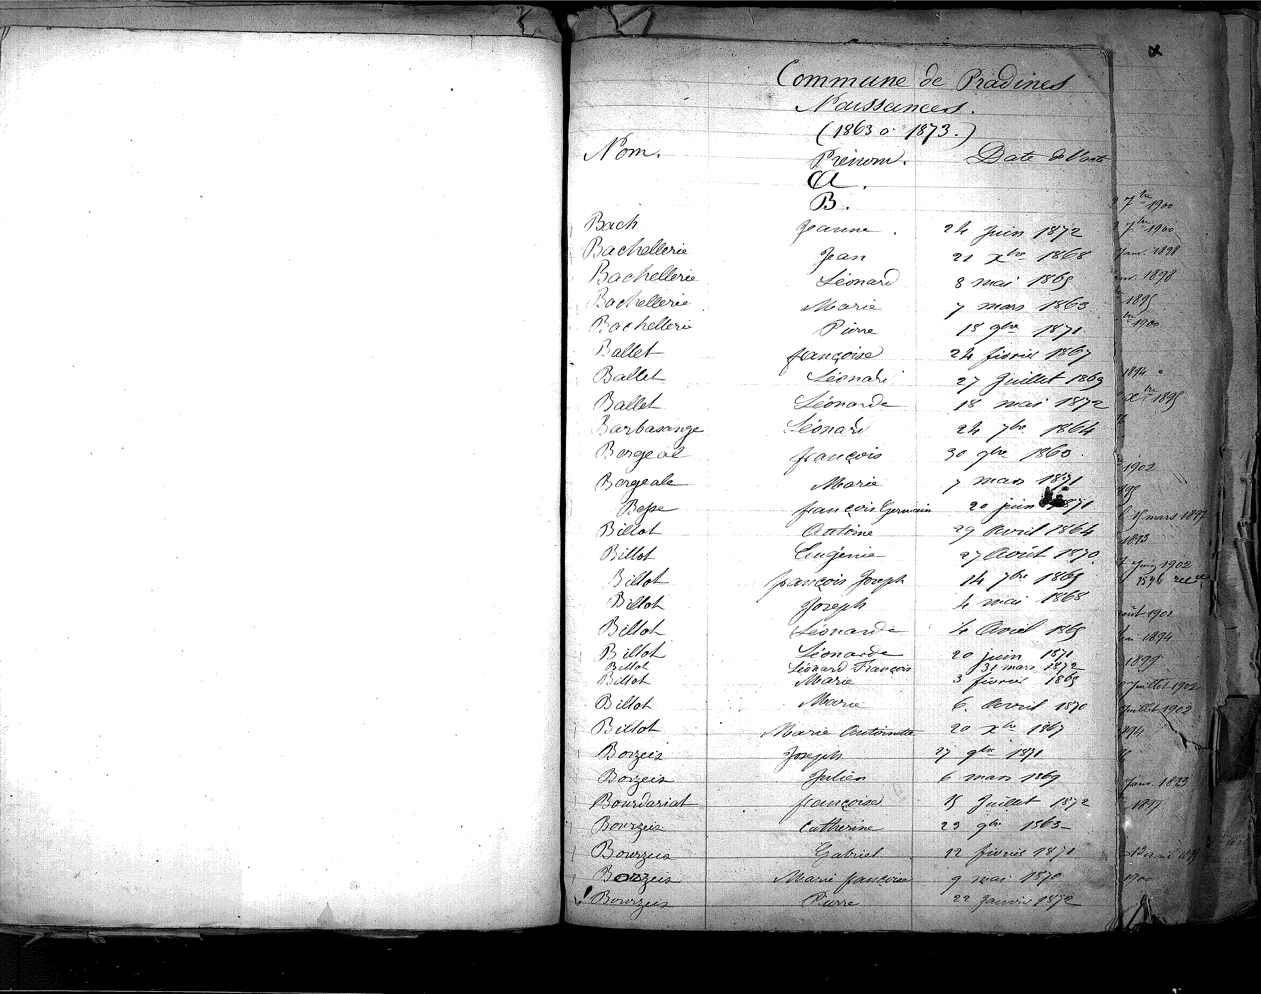 Commune de Pradines
Naissances.
(1863 à 1873.)
Nom. Prénom. Date de l'acte
A.
B.
Bach Jeanne. 24 Juin 1872
Bachellerie Jean 21 Xbre 1868
Bachellerie Léonard 8 mai 1865
Bachellerie Marie 7 mars 1863
Bachellerie Pierre 18 9bre 1871
Ballet françoise 24 février 1867
Ballet Léonard 27 Juillet 1869
Ballet Léonarde 18 mai 1872
Barbasange Léonard 24 7bre 1864
Bergeal françois 30 9bre 1863
Bergeale Marie 7 mars 1871
Besse françois Germain 20 juin 1871
Billot Antoine 29 Avril 1864
Billot Eugénie 27 Août 1870
Billot françois Joseph 14 7bre 1865
Billot Joseph 4 mai 1868
Billot Léonarde 4 Avril 1865
Billot Léonarde 20 juin 1871
Billot Léonard François 31 mars 1872
Billot Marie 3 février 1865
Billot Marie 6 Avril 1870
Billot Marie Antoinette 20 Xbre 1867
Borzeix Joseph 27 9bre 1871
Borzeix Julien 6 mars 1869
Bourdariat françoise 15 Juillet 1872
Bourzeix Catherine 23 9bre 1863
Bourzeix Gabriel 12 février 1871
Borzeix Marie françoise 9 mai 1870
Bourzeix Pierre 22 Janvier 1872
7bre 1900
7bre 1900
Janv. 1898
1898
1895
1900
1894
Xbre 1895
1902
15 mars 1897
1893
1902
1896
août 1901
1894
1899
Juillet 1902
Juillet 1902
1894
Janv. 1893
1897
1900